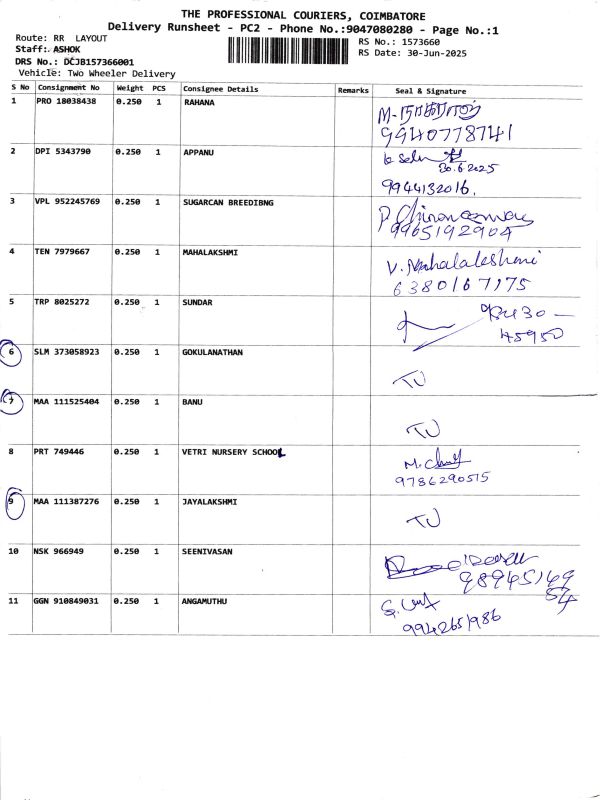 THE PROFESSIONAL COURIERS, COIMBATORE
Delivery Runsheet - PC2 - Phone No.:9047080280 - Page No.:1
Route: RR LAYOUT
RS No.: 1573660
Staff: ASHOK
RS Date: 30-Jun-2025
DRS No.: DCJB157366001
Vehicle: Two Wheeler Delivery
S No Consignment No Weight PCS Consignee Details Remarks Seal & Signature
1 PRO 18038438 0.250 1 RAHANA
9940778741
2 DPI 5343790 0.250 1 APPANU
30.6.2025
9944132016.
3 VPL 952245769 0.250 1 SUGARCAN BREEDIBNG
9965192904
4 TEN 7979667 0.250 1 MAHALAKSHMI V. Mahalakshmi
6380167175
5 TRP 8025272 0.250 1 SUNDAR
45950
6 SLM 373058923 0.250 1 GOKULANATHAN
TJ
7 MAA 111525404 0.250 1 BANU
TJ
8 PRT 749446 0.250 1 VETRI NURSERY SCHOOL
9786290515
9 MAA 111387276 0.250 1 JAYALAKSHMI
TJ
10 NSK 966949 0.250 1 SEENIVASAN
98945149
54
11 GGN 910849031 0.250 1 ANGAMUTHU
9942651986